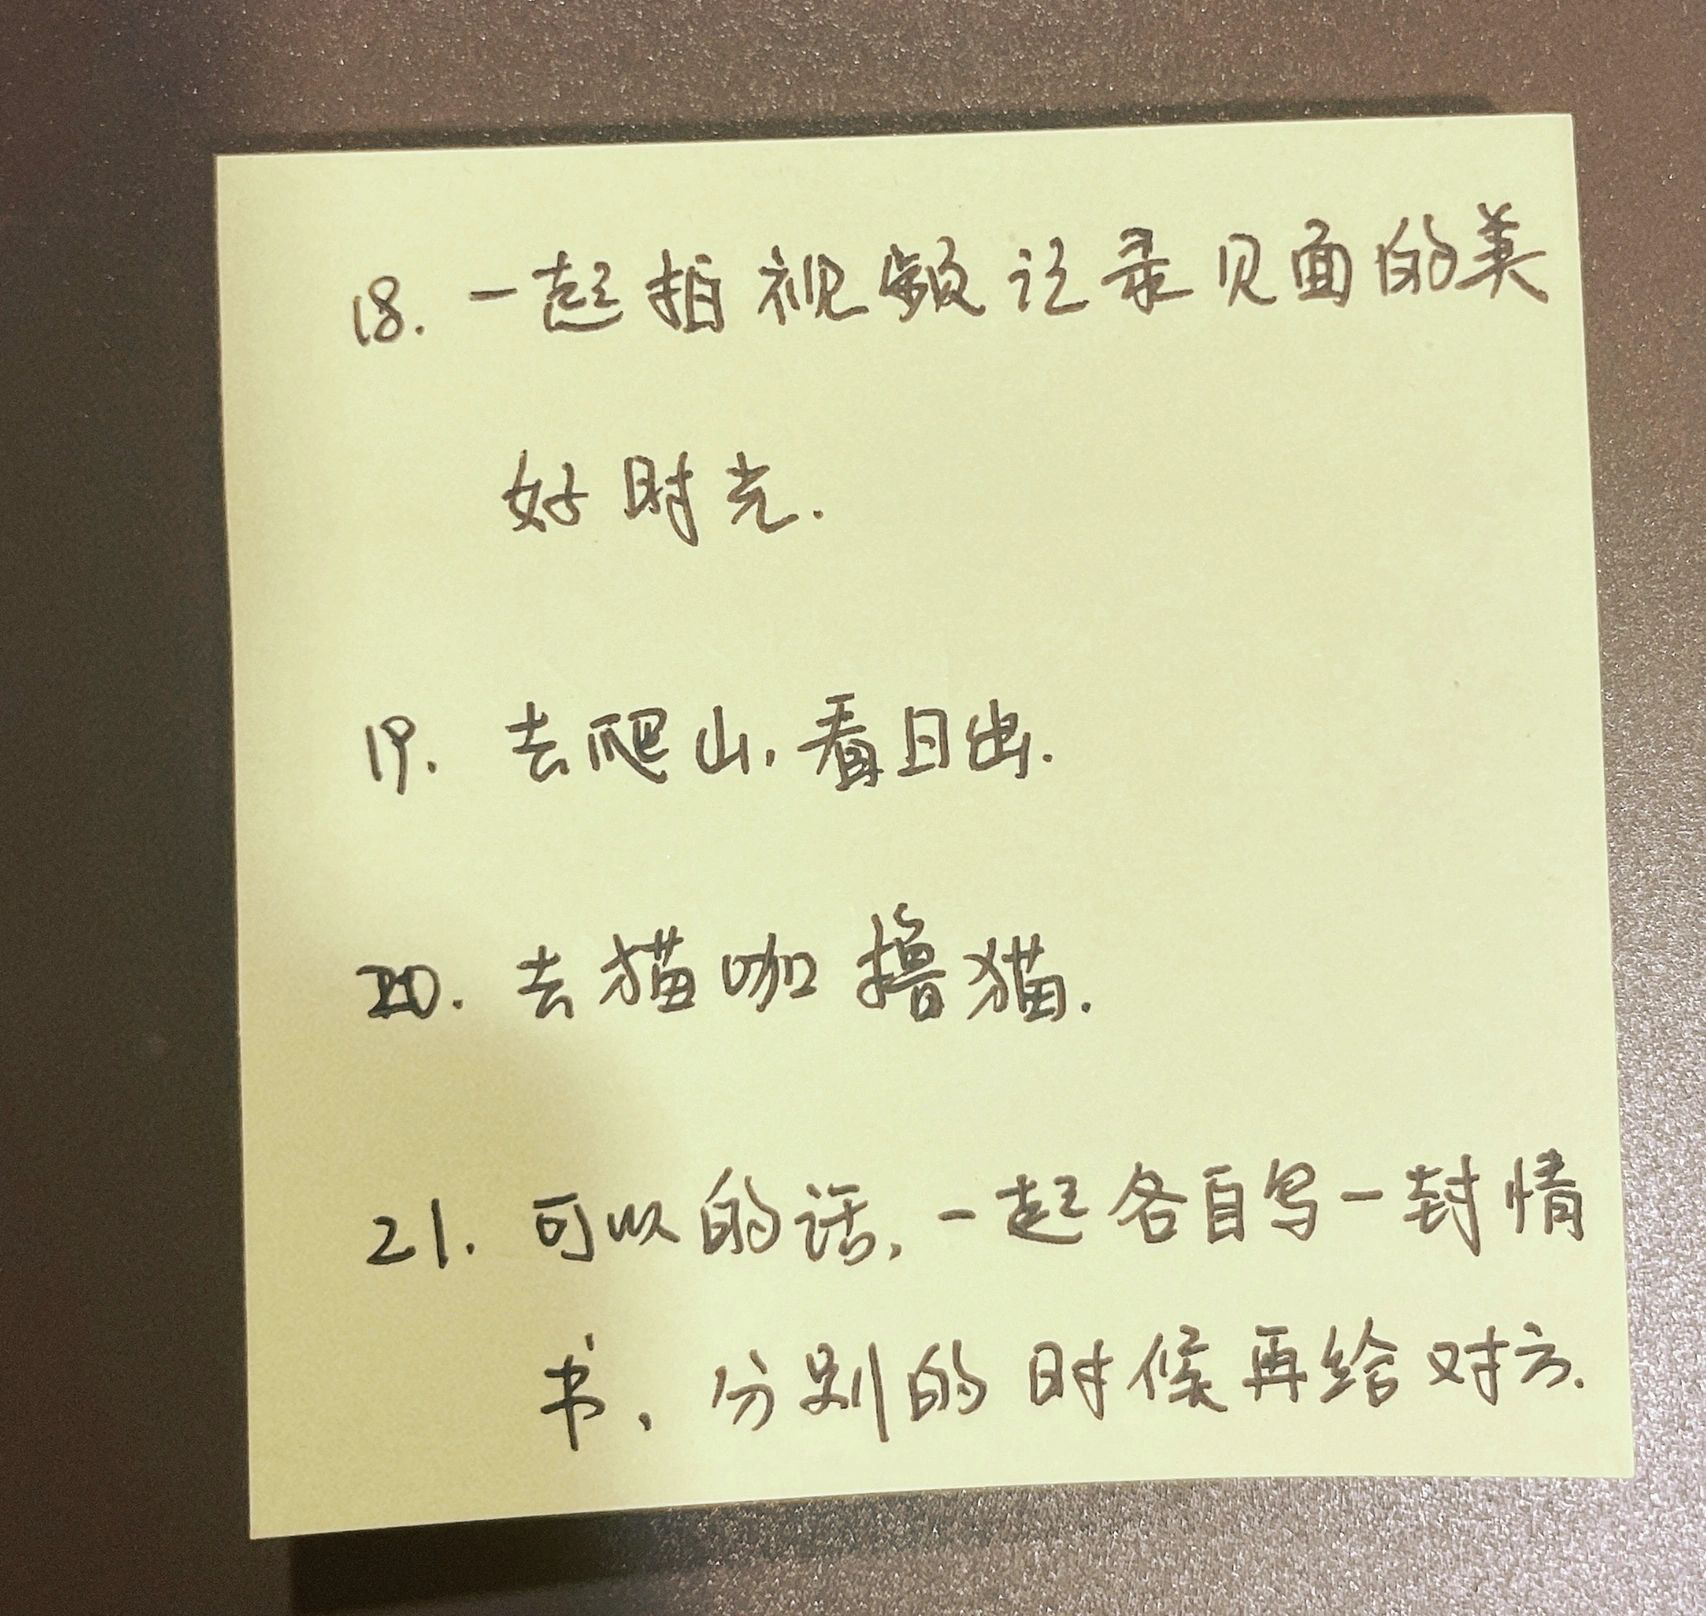 18. 一起拍视频记录见面的美
好时光.
19. 去爬山,看日出.
20. 去猫咖撸猫.
21. 可以的话,一起各自写一封情
书,分别的时候再给对方.